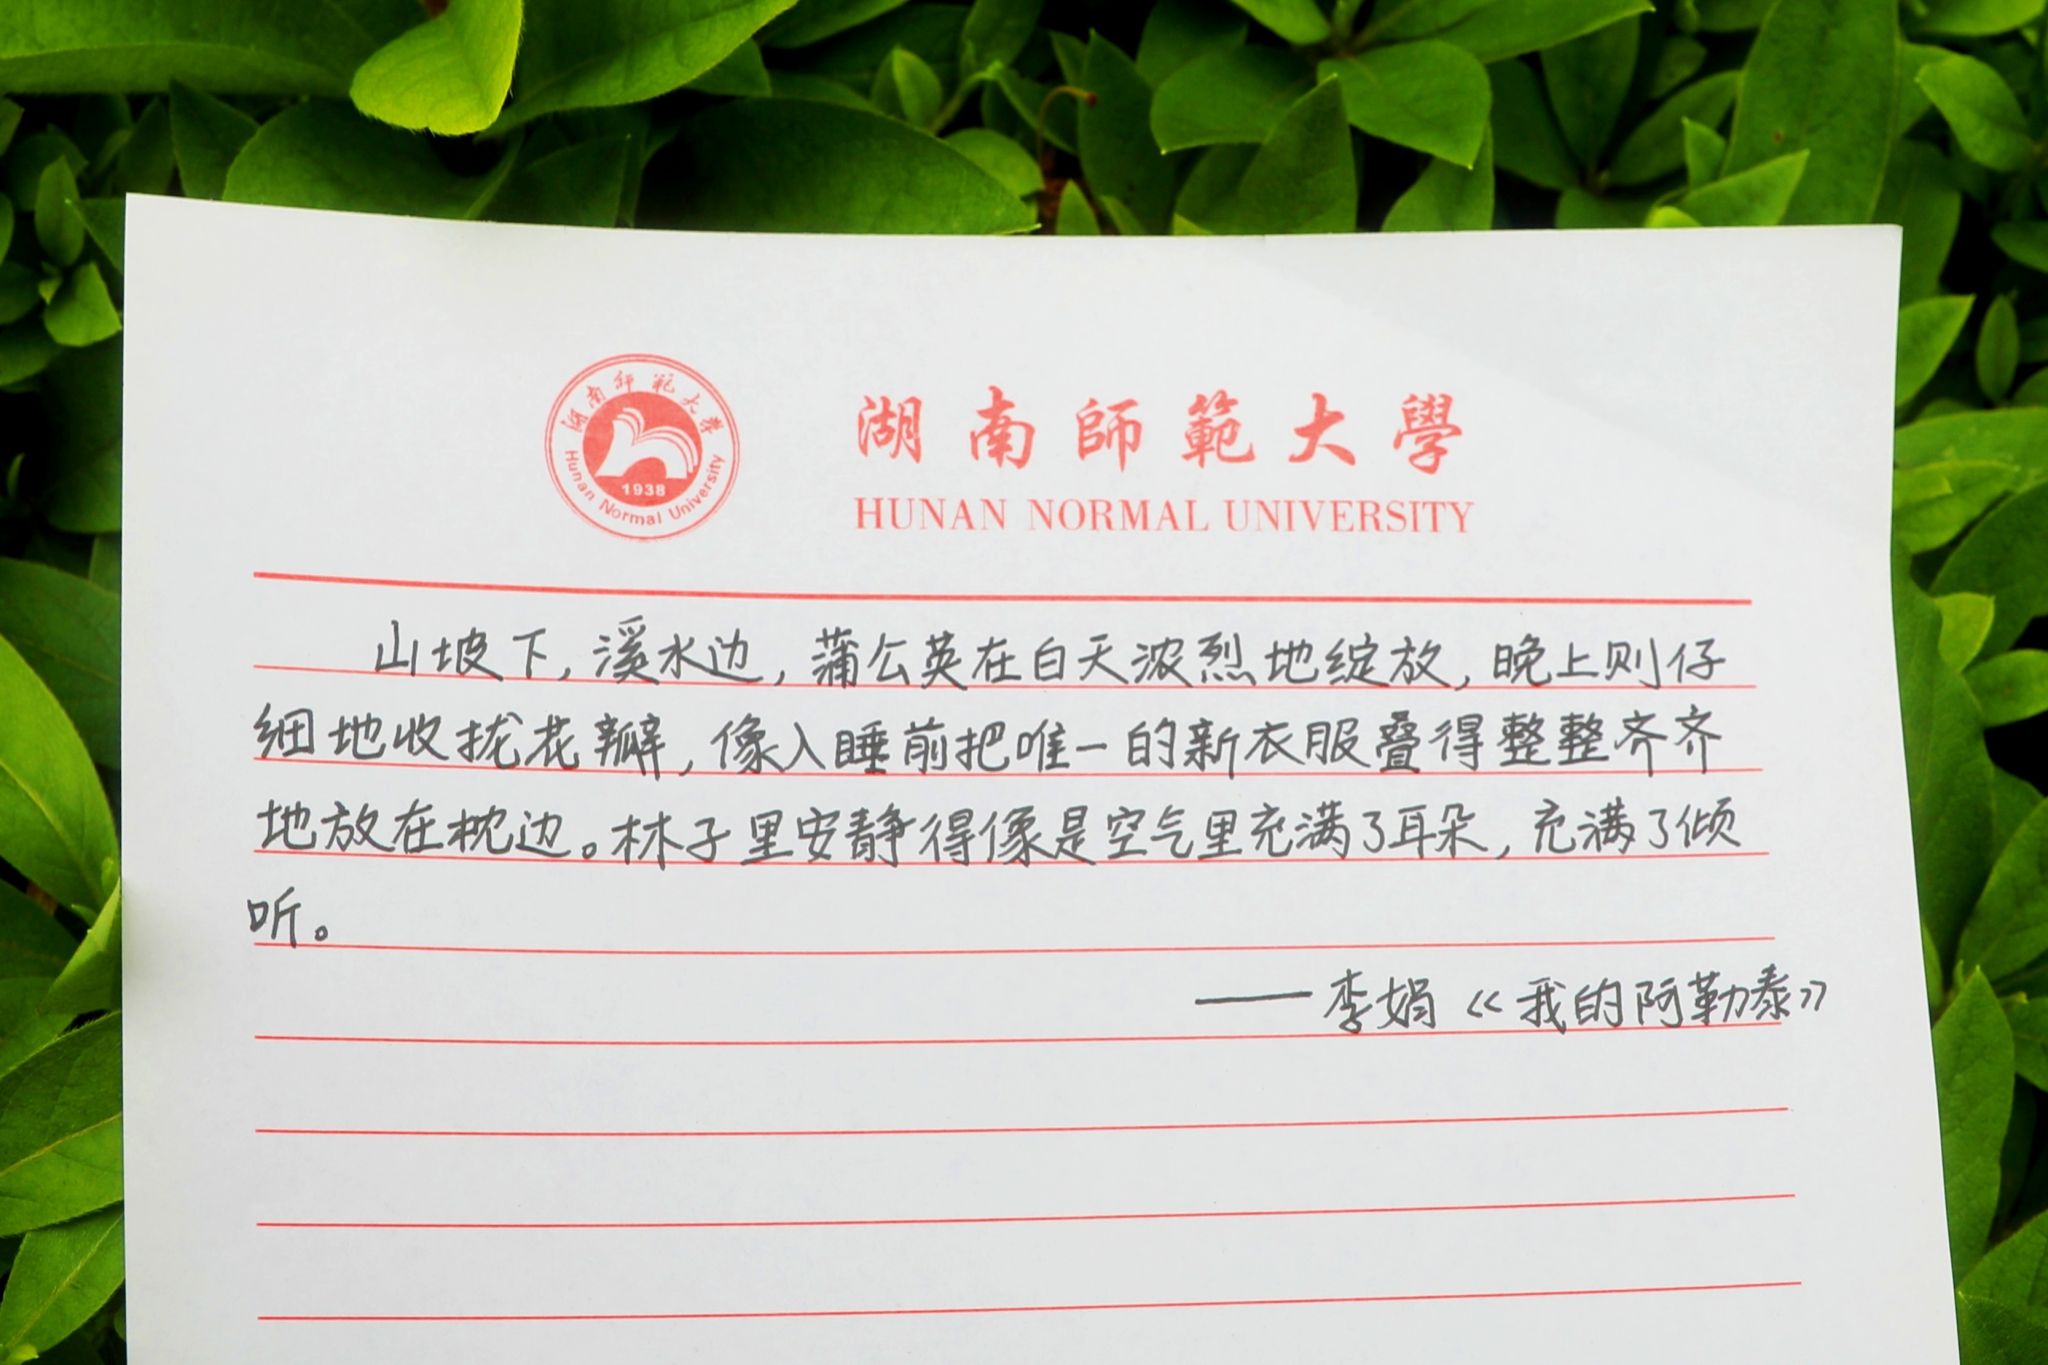 湖南師範大學
Hunan Normal University
1938
湖南師範大學
HUNAN NORMAL UNIVERSITY
山坡下，溪水边，蒲公英在白天浓烈地绽放，晚上则仔
细地收拢花瓣，像入睡前把唯一的新衣服叠得整整齐齐
地放在枕边。林子里安静得像是空气里充满了耳朵，充满了倾
听。
——李娟《我的阿勒泰》